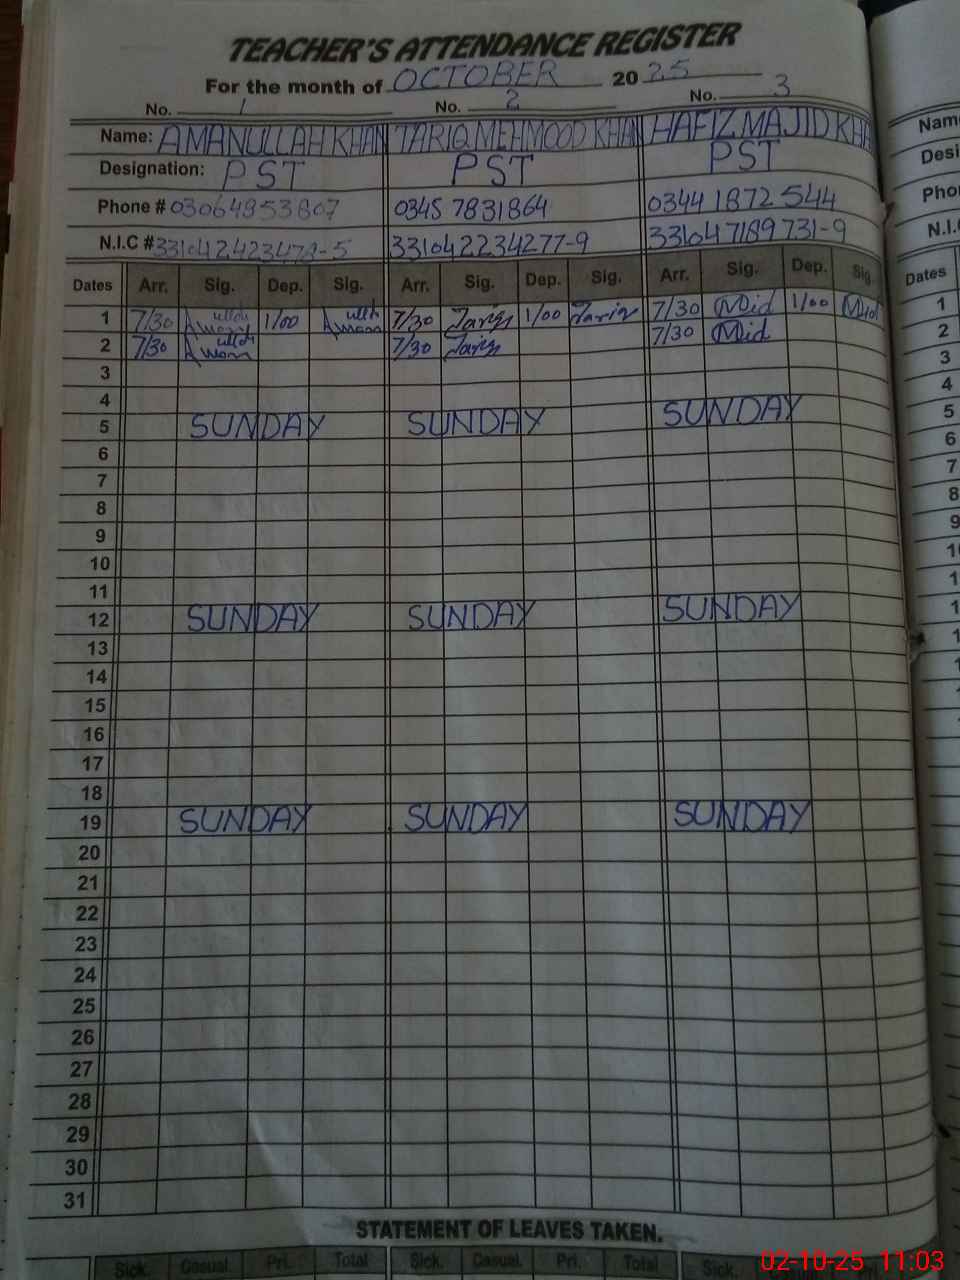 TEACHER'S ATTENDANCE REGISTER
For the month of OCTOBER 20 25
No. 1 No. 2 No. 3
Name: AMANULLAH KHAN TARIQ MEHMOOD KHAN HAFIZ MAJID KHA
Designation: PST PST PST
Phone # 03064953807 0345 7831864 0344 1872 544
N.I.C # 331042234277-9 331047189731-9
Dates Arr. Sig. Dep. Sig. Arr. Sig. Dep. Sig. Arr. Sig. Dep. Sig.
1 7/30 1/00 7/30 Tariq 1/00 Tariq 7/30 1/00
2 7/30 7/30 Tariq 7/30
3
4
5 SUNDAY SUNDAY SUNDAY
6
7
8
9
10
11
12 SUNDAY SUNDAY SUNDAY
13
14
15
16
17
18
19 SUNDAY SUNDAY SUNDAY
20
21
22
23
24
25
26
27
28
29
30
31
STATEMENT OF LEAVES TAKEN.
Sick. Casual Pri. Total Sick. Casual. Pri. Total Sick.
Nam
Desi
Pho
N.I.C
Dates
1
2
3
4
5
6
7
8
9
02-10-25 11:03